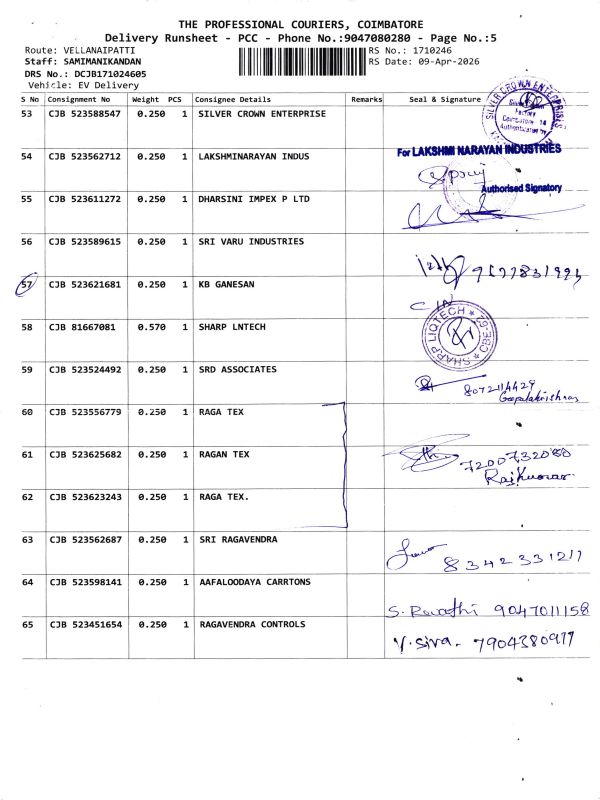 THE PROFESSIONAL COURIERS, COIMBATORE
Delivery Runsheet - PCC - Phone No.:9047080280 - Page No.:5
Route: VELLANAIPATTI RS No.: 1710246
Staff: SAMIMANIKANDAN RS Date: 09-Apr-2026
DRS No.: DCJB171024605
Vehicle: EV Delivery
S No Consignment No Weight PCS Consignee Details Remarks Seal & Signature
53 CJB 523588547 0.250 1 SILVER CROWN ENTERPRISE SILVER CROWN ENTERPRISES
54 CJB 523562712 0.250 1 LAKSHMINARAYAN INDUS For LAKSHMI NARAYAN INDUSTRIES
Authorised Signatory
55 CJB 523611272 0.250 1 DHARSINI IMPEX P LTD
56 CJB 523589615 0.250 1 SRI VARU INDUSTRIES
57 CJB 523621681 0.250 1 KB GANESAN
58 CJB 81667081 0.570 1 SHARP LNTECH SHARP LIQTECH CBE-62
59 CJB 523524492 0.250 1 SRD ASSOCIATES 8072114429
Gopalakrishnan
60 CJB 523556779 0.250 1 RAGA TEX
61 CJB 523625682 0.250 1 RAGAN TEX 7200732080
Rajkumar
62 CJB 523623243 0.250 1 RAGA TEX.
63 CJB 523562687 0.250 1 SRI RAGAVENDRA 8342331217
64 CJB 523598141 0.250 1 AAFALOODAYA CARRTONS S. Revathi 9047011158
65 CJB 523451654 0.250 1 RAGAVENDRA CONTROLS V. Siva. 7904380977